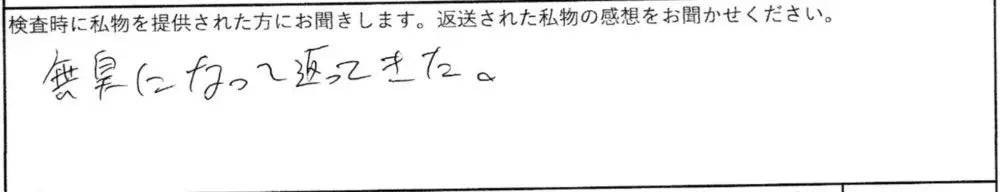 検査時に私物を提供された方にお聞きします。返送された私物の感想をお聞かせください。
無臭になって返ってきた。